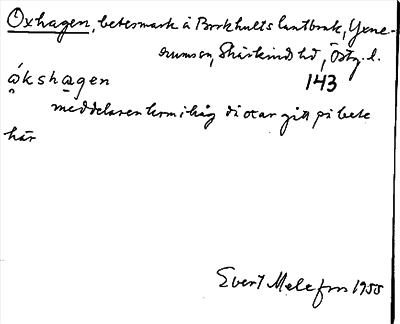 Oxhagen, betesmark å Borkhults lantbruk, Yxne-
rums sn, Skärkinds hd, Östg. l.
ǫ́kshagen 143
meddelaren kom ihåg då oxar gått på bete
här
Evert Melefors 1955